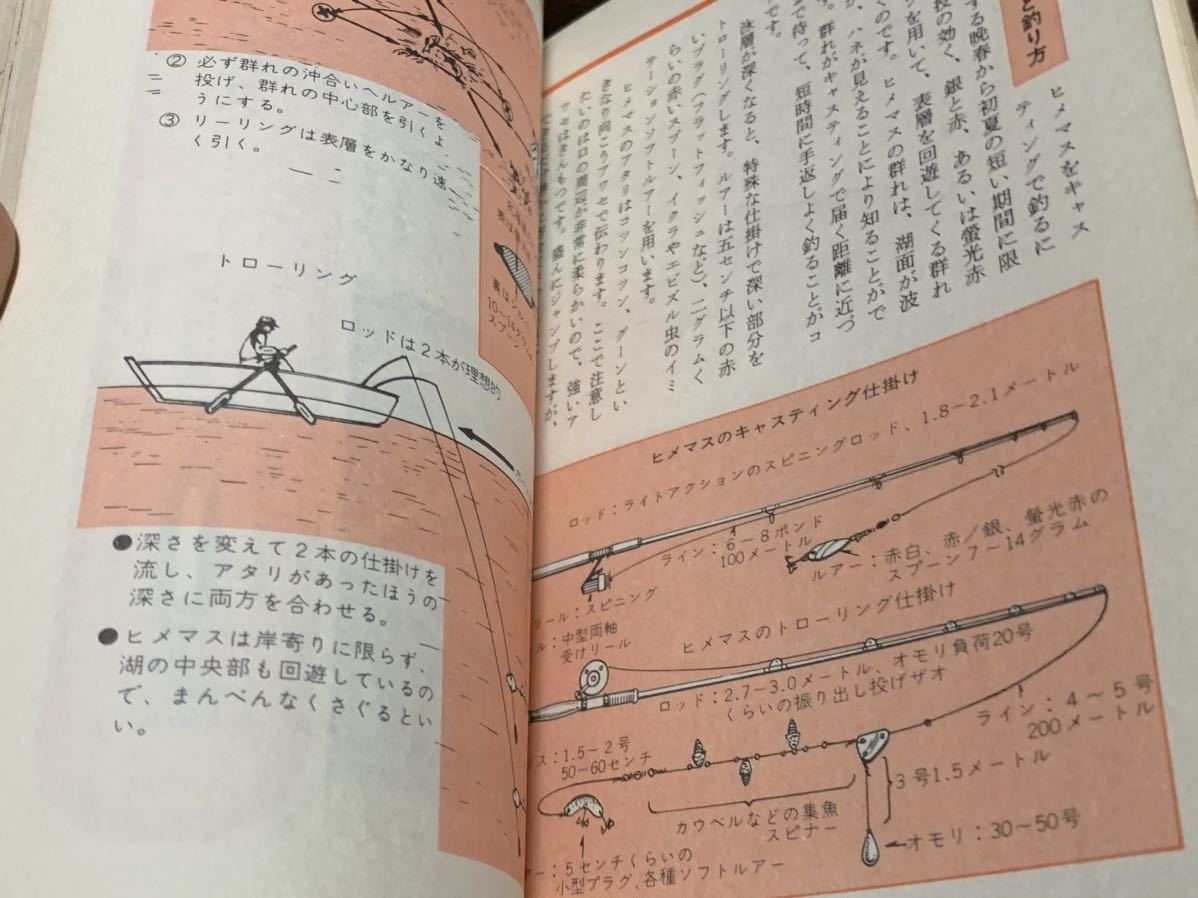 と釣り方
ヒメマスをキャス
ティングで釣るに
する晩春から初夏の短い期間に限
投の効く、銀と赤、あるいは螢光赤
ンを用いて、表層を回遊してくる群れ
くのです。ヒメマスの群れは、湖面が波
か、ハネが見えることにより知ることがで
す。群れがキャスティングで届く距離に近づ
まで待って、短時間に手返しよく釣ることがコ
です。
泳層が深くなると、特殊な仕掛けで深い部分を
トローリングします。ルアーは五センチ以下の赤
いプラグ(フラットフィッシュなど)、二グラムく
らいの赤いスプーン、イクラやエビズル虫のイミ
テーションソフトルアーを用います。
ヒメマスのアタリはコツンコツン、グーンとい
きなり向こうアワセで伝わります。ここで注意し
たいのは口の周辺が非常に柔らかいので、強いア
ワセはきんもつです。盛んにジャンプしますが、
ヒメマスのキャスティング仕掛け
ロッド:ライトアクションのスピニングロッド、1.8〜2.1メートル
ライン:6〜8ポンド
100メートル
ルアー:赤白、赤/銀、螢光赤の
スプーン7〜14グラム
リール:スピニング
ル:中型両軸
受けリール
ヒメマスのトローリング仕掛け
ロッド:2.7〜3.0メートル、オモリ負荷20号
くらいの振り出し投げザオ
ライン:4〜5号
200メートル
ス:1.5〜2号
50〜60センチ
3号1.5メートル
カウベルなどの集魚
スピナー
オモリ:30〜50号
アー:5センチくらいの
小型プラグ、各種ソフトルアー
② 必ず群れの沖合いへルアーを
投げ、群れの中心部を引くよ
うにする。
③ リーリングは表層をかなり速
く引く。
10〜14グラム
スプーン
トローリング
ロッドは2本が理想的
●深さを変えて2本の仕掛けを
流し、アタリがあったほうの
深さに両方を合わせる。
●ヒメマスは岸寄りに限らず、
湖の中央部も回遊しているの
で、まんべんなくさぐるとい
い。